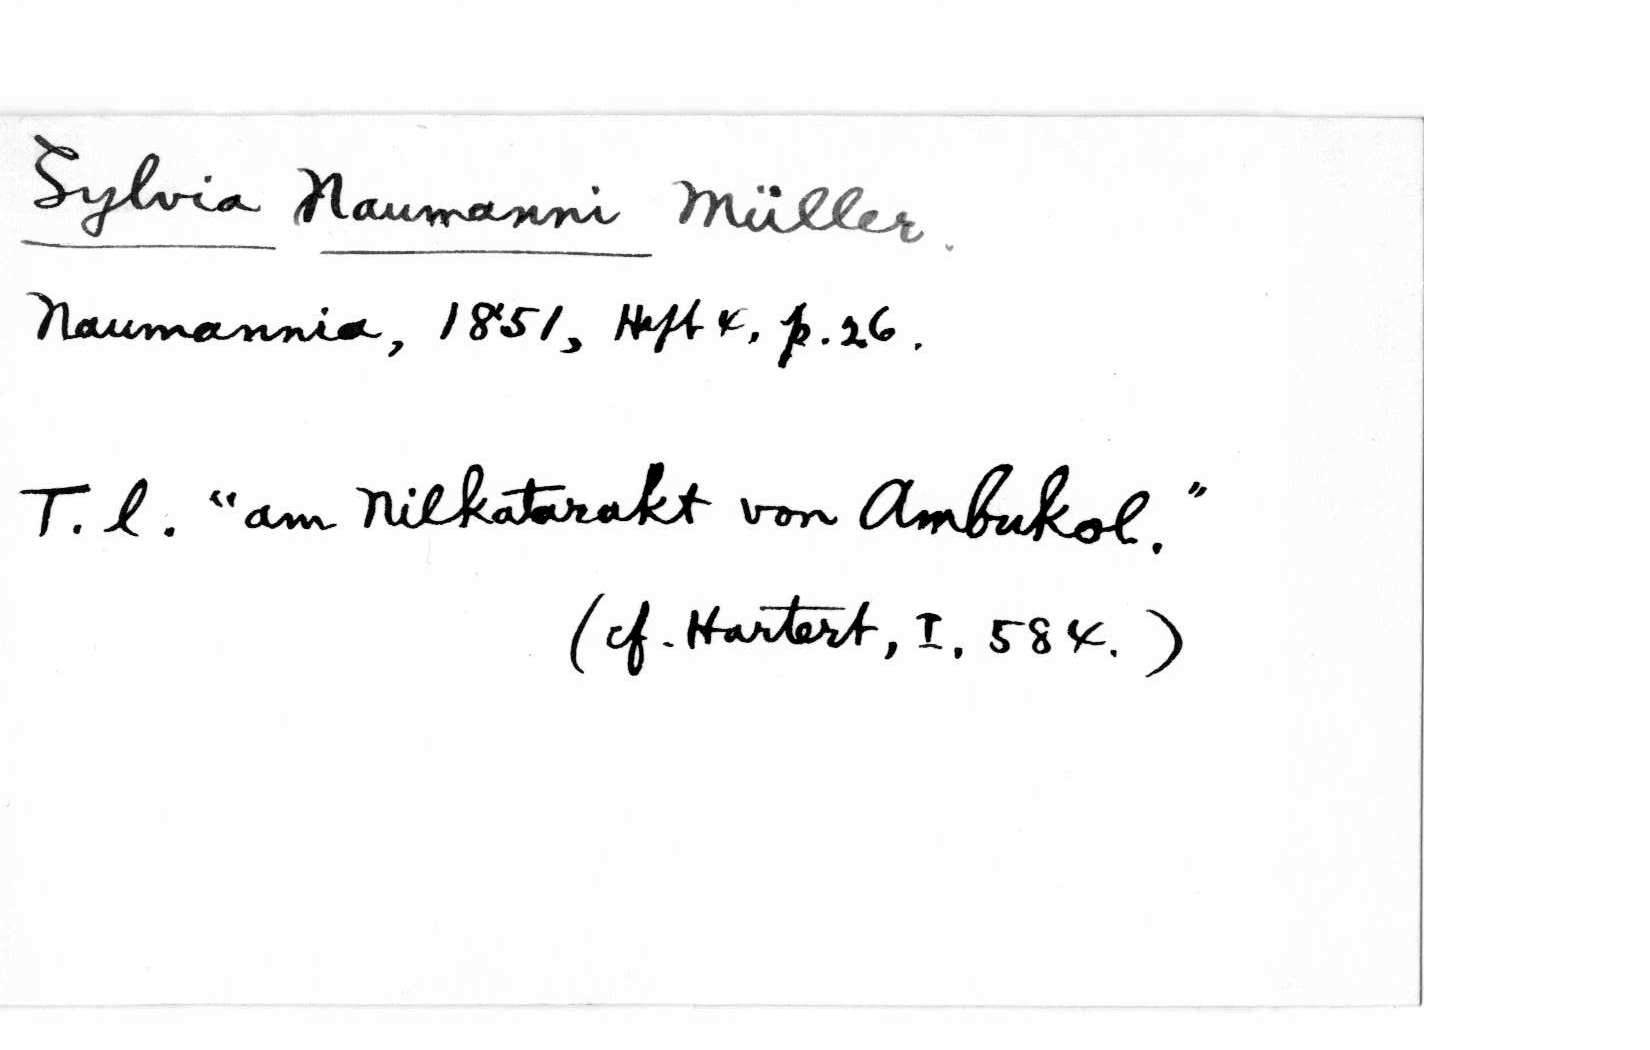 Sylvia Naumanni Müller.
Naumannia, 1851, Heft 4, p. 26.
T. l. "am Nilkatarakt von Ambukol."
(cf. Hartert, I, 584.)